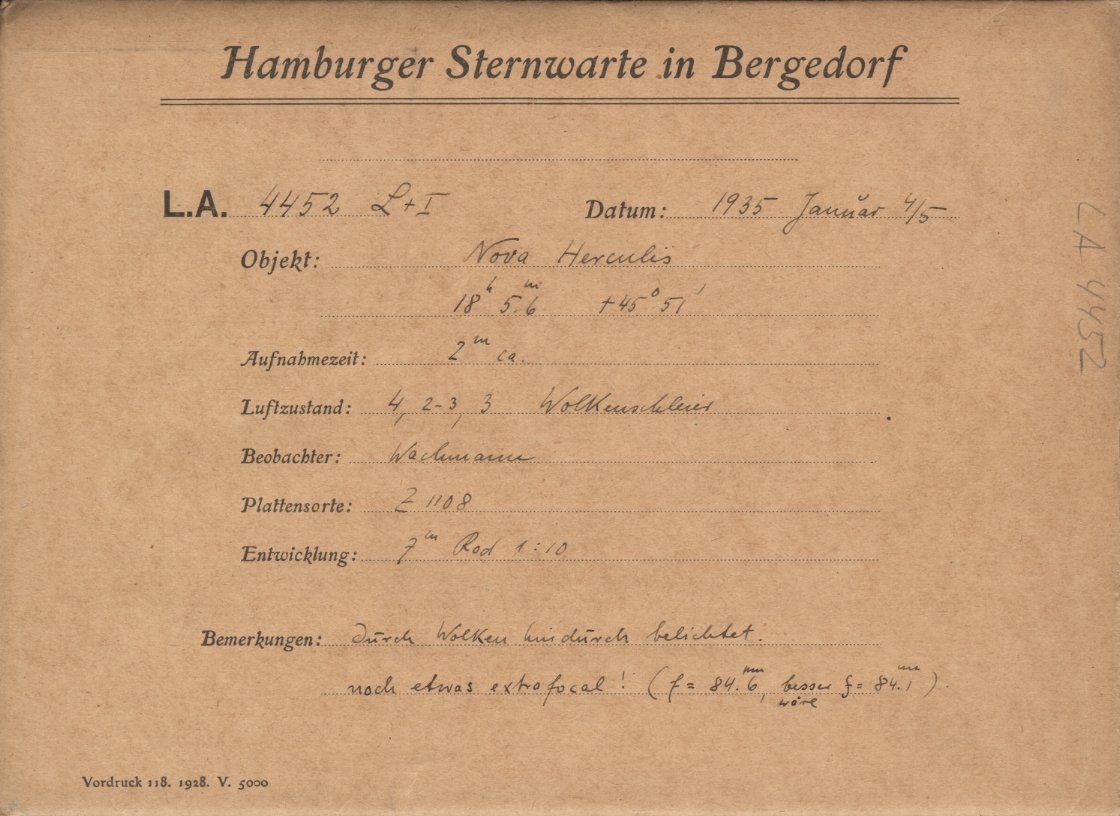 Hamburger Sternwarte in Bergedorf
L.A. 4452 L+I Datum: 1935 Januar 4/5
Objekt: Nova Herculis
18h 5.m6 +45° 51'
Aufnahmezeit: 2m ca.
Luftzustand: 4, 2-3, 3 Wolkenschleier
Beobachter: Wachmann
Plattensorte: Z 1108
Entwicklung: 7m Rod 1:10
Bemerkungen: durch Wolken hindurch belichtet.
noch etwas extrafocal! (f = 84.mm6, besser wäre f = 84.mm1).
Vordruck 118. 1928. V. 5000
LA 4452